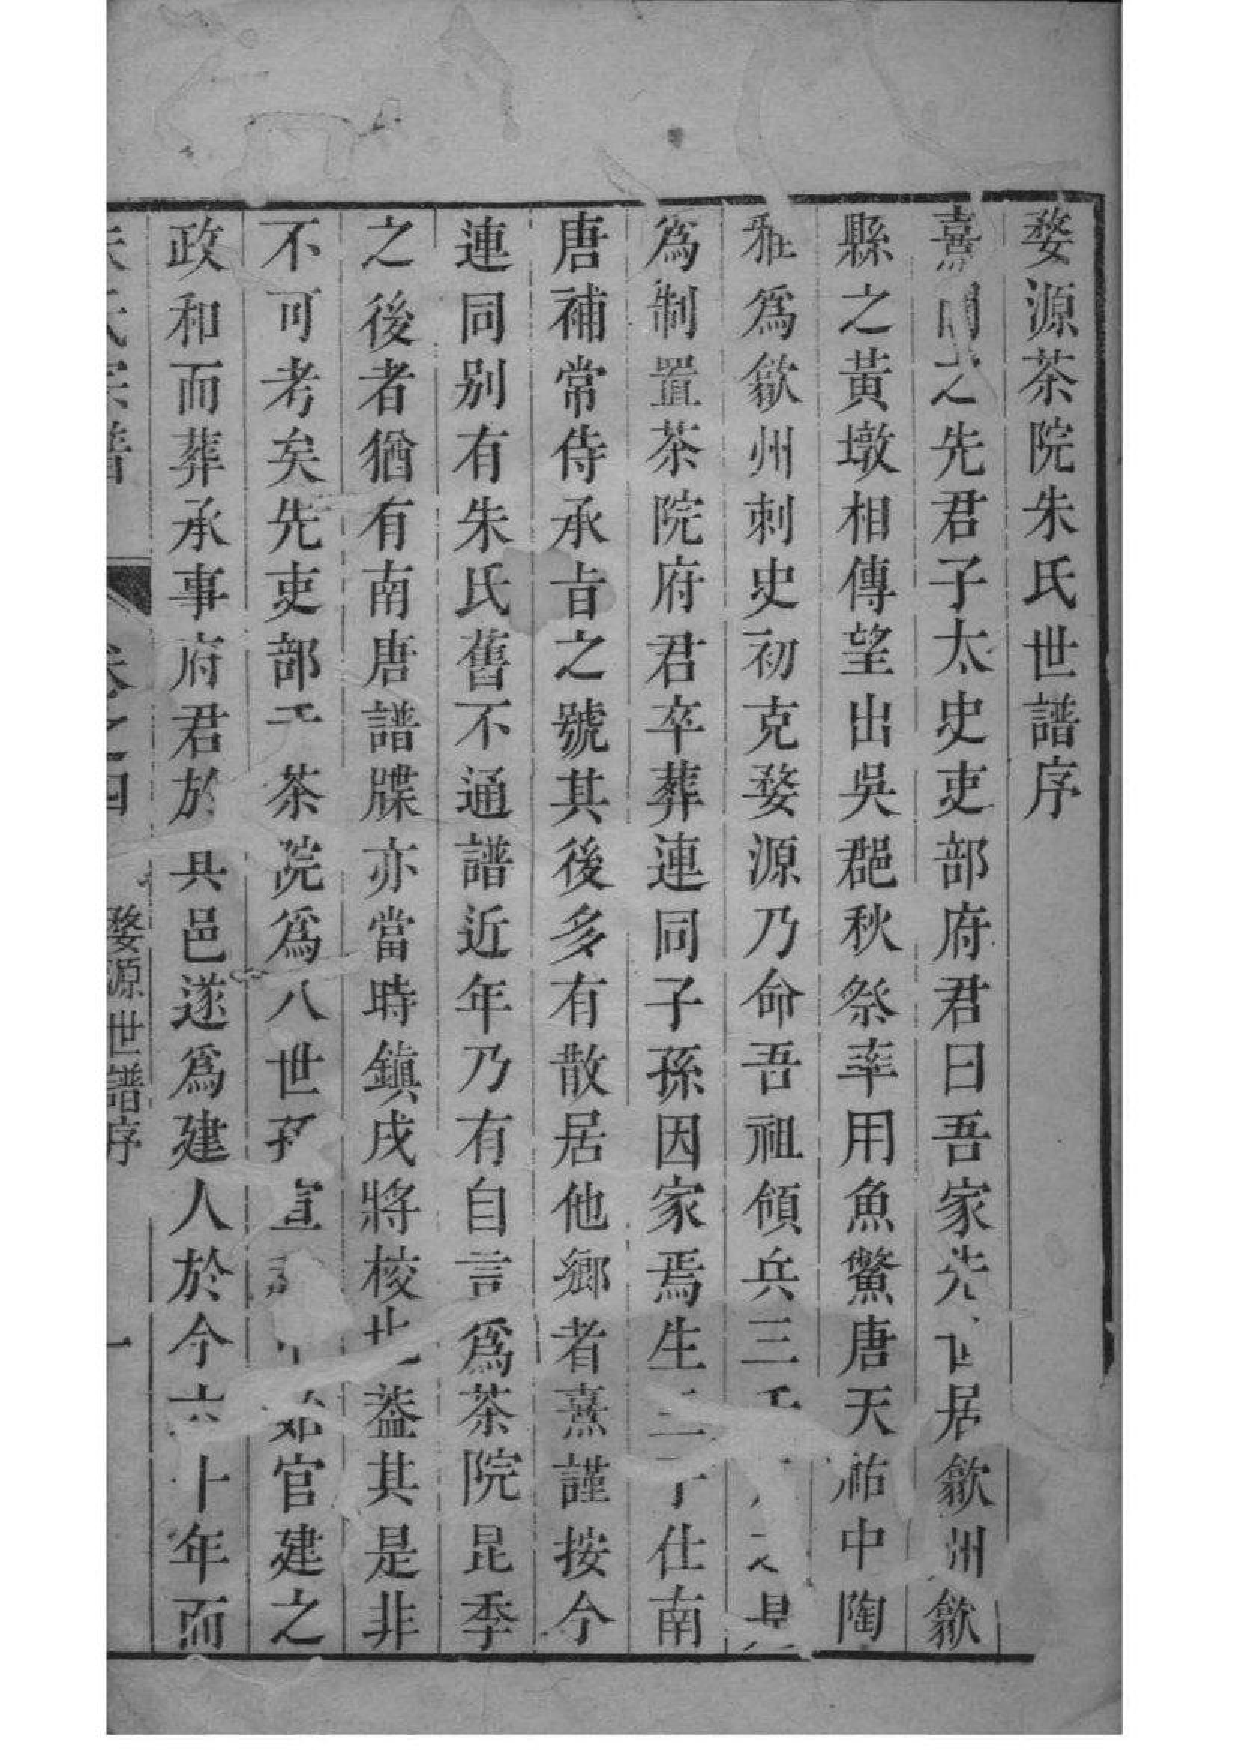 婺源茶院朱氏世譜序
熹聞之先君子太史吏部府君曰吾家先世居歙州歙
縣之黃墩相傳望出吳郡秋祭率用魚鱉唐天祐中陶
雅為歙州刺史初克婺源乃命吾祖領兵三千
為制置茶院府君卒葬連同子孫因家焉生三子仕南
唐補常侍承旨之號其後多有散居他鄉者熹謹按今
連同別有朱氏舊不通譜近年乃有自言為茶院昆季
之後者猶有南唐譜牒亦當時鎮戍將校也蓋其是非
不可考矣先吏部于茶院為八世孫宣 始官建之
政和而葬承事府君於其邑遂為建人於今六十年而
朱氏宗譜 卷之四 婺源世譜序 一